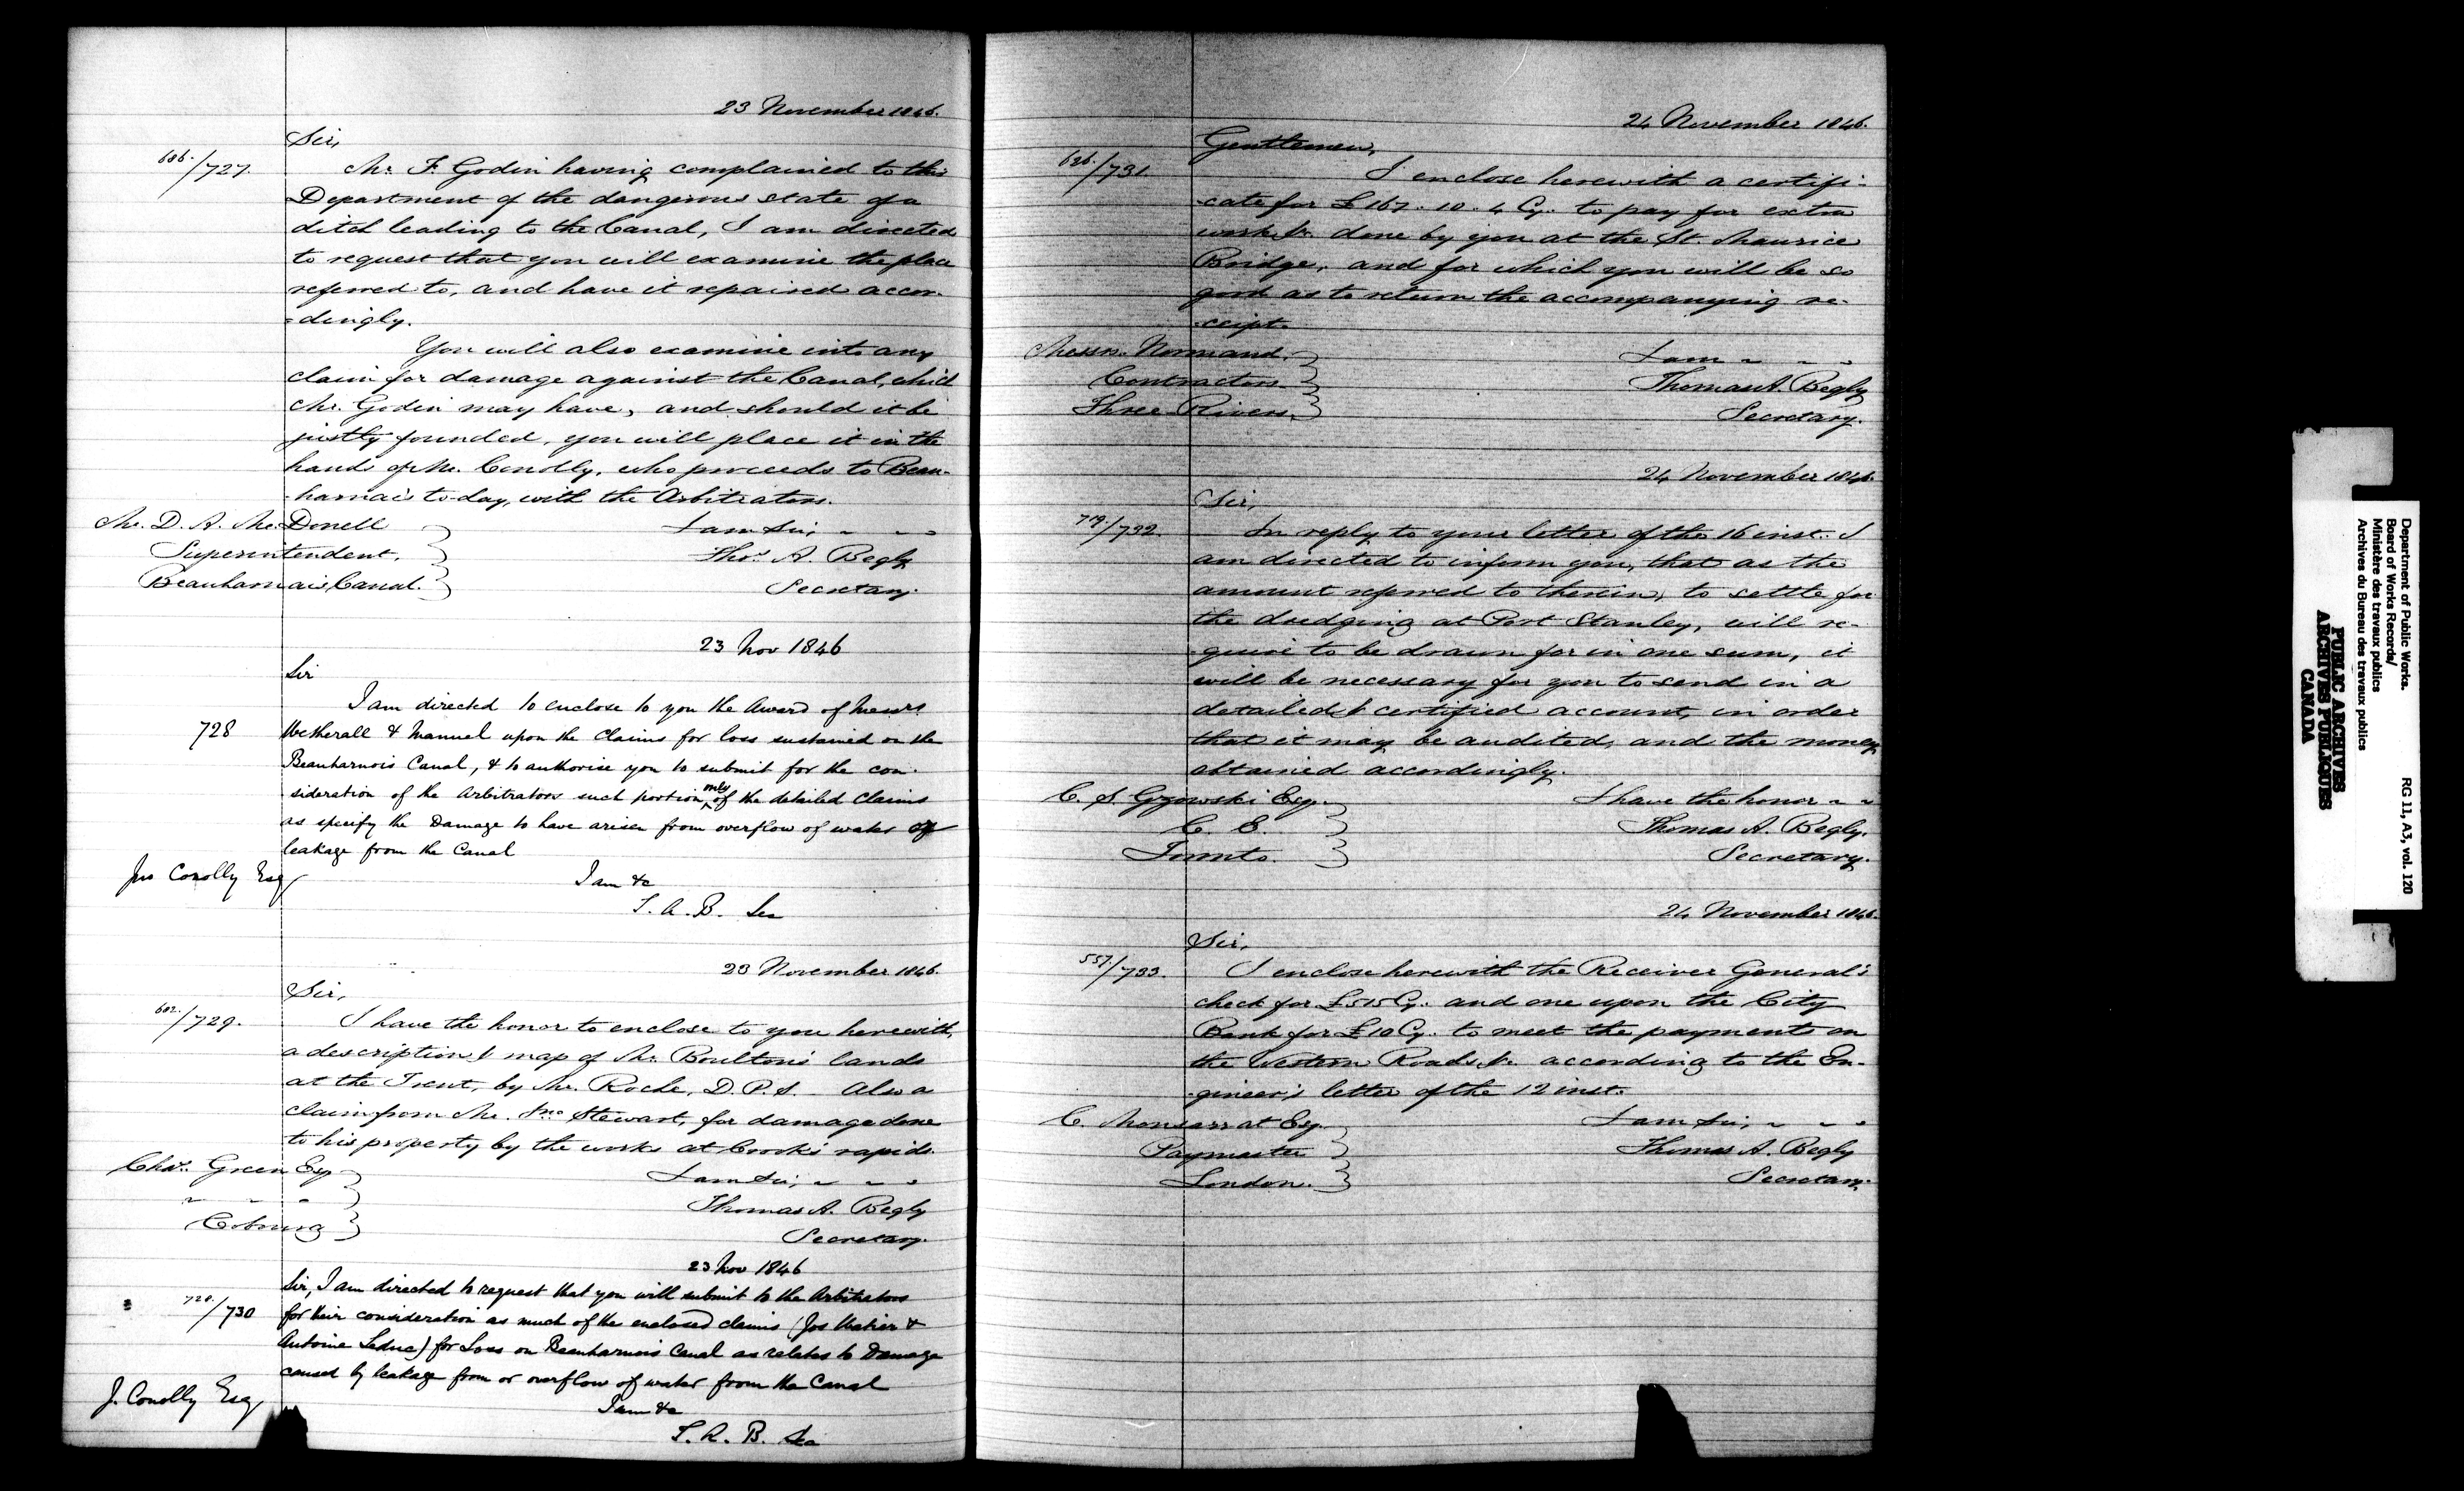 23 November 1846.
Sir,
686./727. Mr. F. Godin having complained to this
Department of the dangerous state of a
ditch leading to the Canal, I am directed
to request that you will examine the place
referred to, and have it repaired accor-
-dingly.
You will also examine into any
claim for damage against the Canal, which
Mr. Godin may have, and should it be
justly founded, you will place it in the
hands of Mr. Conolly, who proceeds to Beau-
-harnais to-day, with the Arbitrators.
Mr. D. A. McDonell
Superintendent,
Beauharnais Canal.
I am Sir,
Thos. A. Begly
Secretary.
23 Nov 1846
Sir
I am directed to enclose to you the Award of Messrs.
728 Wetherall & Manuel upon the Claims for loss sustained on the
Beauharnois Canal, & to authorise you to submit for the con-
sideration of the Arbitrators such portion only of the detailed Claims
as specify the Damage to have arisen from overflow of water or
leakage from the Canal
Jno Conolly Esq
I am &c
T. A. B. Sec
23 November 1846.
Sir,
602./729. I have the honor to enclose to you herewith,
a description & map of Mr. Boulton's lands
at the Trent, by Mr. Roche, D. P. S. Also a
claim from Mr. Jno Stewart, for damage done
to his property by the works at Crook's rapids.
Chas. Green Esq
" " "
Cobourg
I am Sir,
Thomas A. Begly
Secretary.
23 Nov 1846
Sir, I am directed to request that you will submit to the Arbitrators
720./730 for their consideration as much of the enclosed claims (Jos Watier &
Antoine Leduc) for Loss on Beauharnois Canal as relates to Damage
caused by leakage from or overflow of water from the Canal
J. Conolly Esq
I am &c
T. A. B. Sec
24 November 1846.
Gentlemen,
626./731. I enclose herewith a certifi-
-cate for £167.10.4 Cy. to pay for extra
work &c. done by you at the St. Maurice
Bridge, and for which you will be so
good as to return the accompanying re-
-ceipt.
Messrs. Normand,
Contractors
Three Rivers.
I am
Thomas A. Begly
Secretary.
24 November 1846.
Sir,
719./732. In reply to your letter of the 16 inst. I
am directed to inform you, that as the
amount referred to therein, to settle for
the dredging at Port Stanley, will re-
-quire to be drawn for in one sum, it
will be necessary for you to send in a
detailed & certified account, in order
that it may be audited, and the money
obtained accordingly.
C. S. Gzowski Esq.
C. E.
Toronto.
I have the honor
Thomas A. Begly.
Secretary.
24 November 1846.
Sir,
557./733. I enclose herewith the Receiver General's
check for £515 Cy. and one upon the City
Bank for £10 Cy. to meet the payments on
the Western Roads &c. according to the En-
-gineer's letter of the 12 inst.
C. Monsarrat Esq.
Paymaster
London.
I am Sir,
Thomas A. Begly
Secretary.
Department of Public Works.
Board of Works Records/
Ministère des travaux publics
Archives du Bureau des travaux publics
RG 11, A3, vol. 120
PUBLIC ARCHIVES
ARCHIVES PUBLIQUES
CANADA